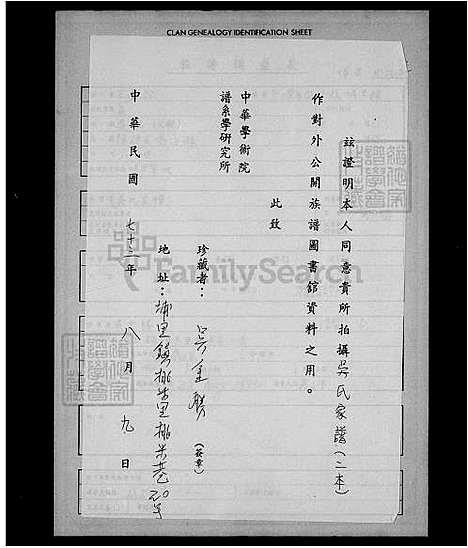 CLAN GENEALOGY IDENTIFICATION SHEET
茲證明本人同意貴所拍攝吳氏家譜(二本)
作對外公開族譜圖書館資料之用。
此致
中華學術院
譜系學研究所
珍藏者：吳金 (簽章)
地址：埔里鎮桃米里桃米巷20号
中華民國七十三年八月九日
FamilySearch